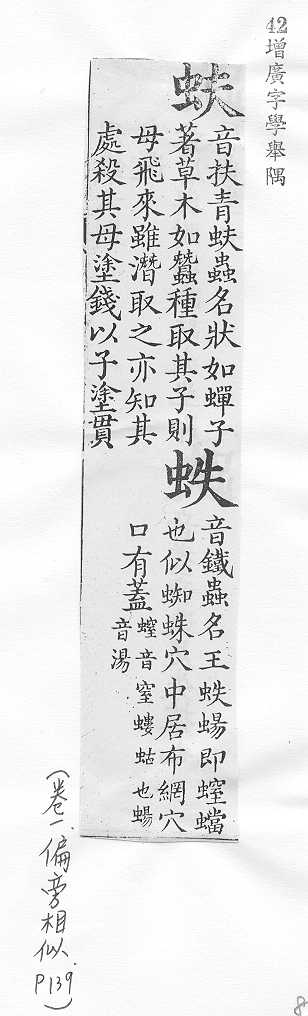 42增廣字學舉隅
蚨
音扶青蚨蟲名狀如蟬子
著草木如蠶種取其子則
母飛來雖潛取之亦知其
處殺其母塗錢以子塗貫
蛈
音鐵蟲名王蛈蝪即螲蟷
也似蜘蛛穴中居布網穴
口有蓋螲音窒螻蛄也蝪
音湯
(卷一.偏旁相似.P139)
8